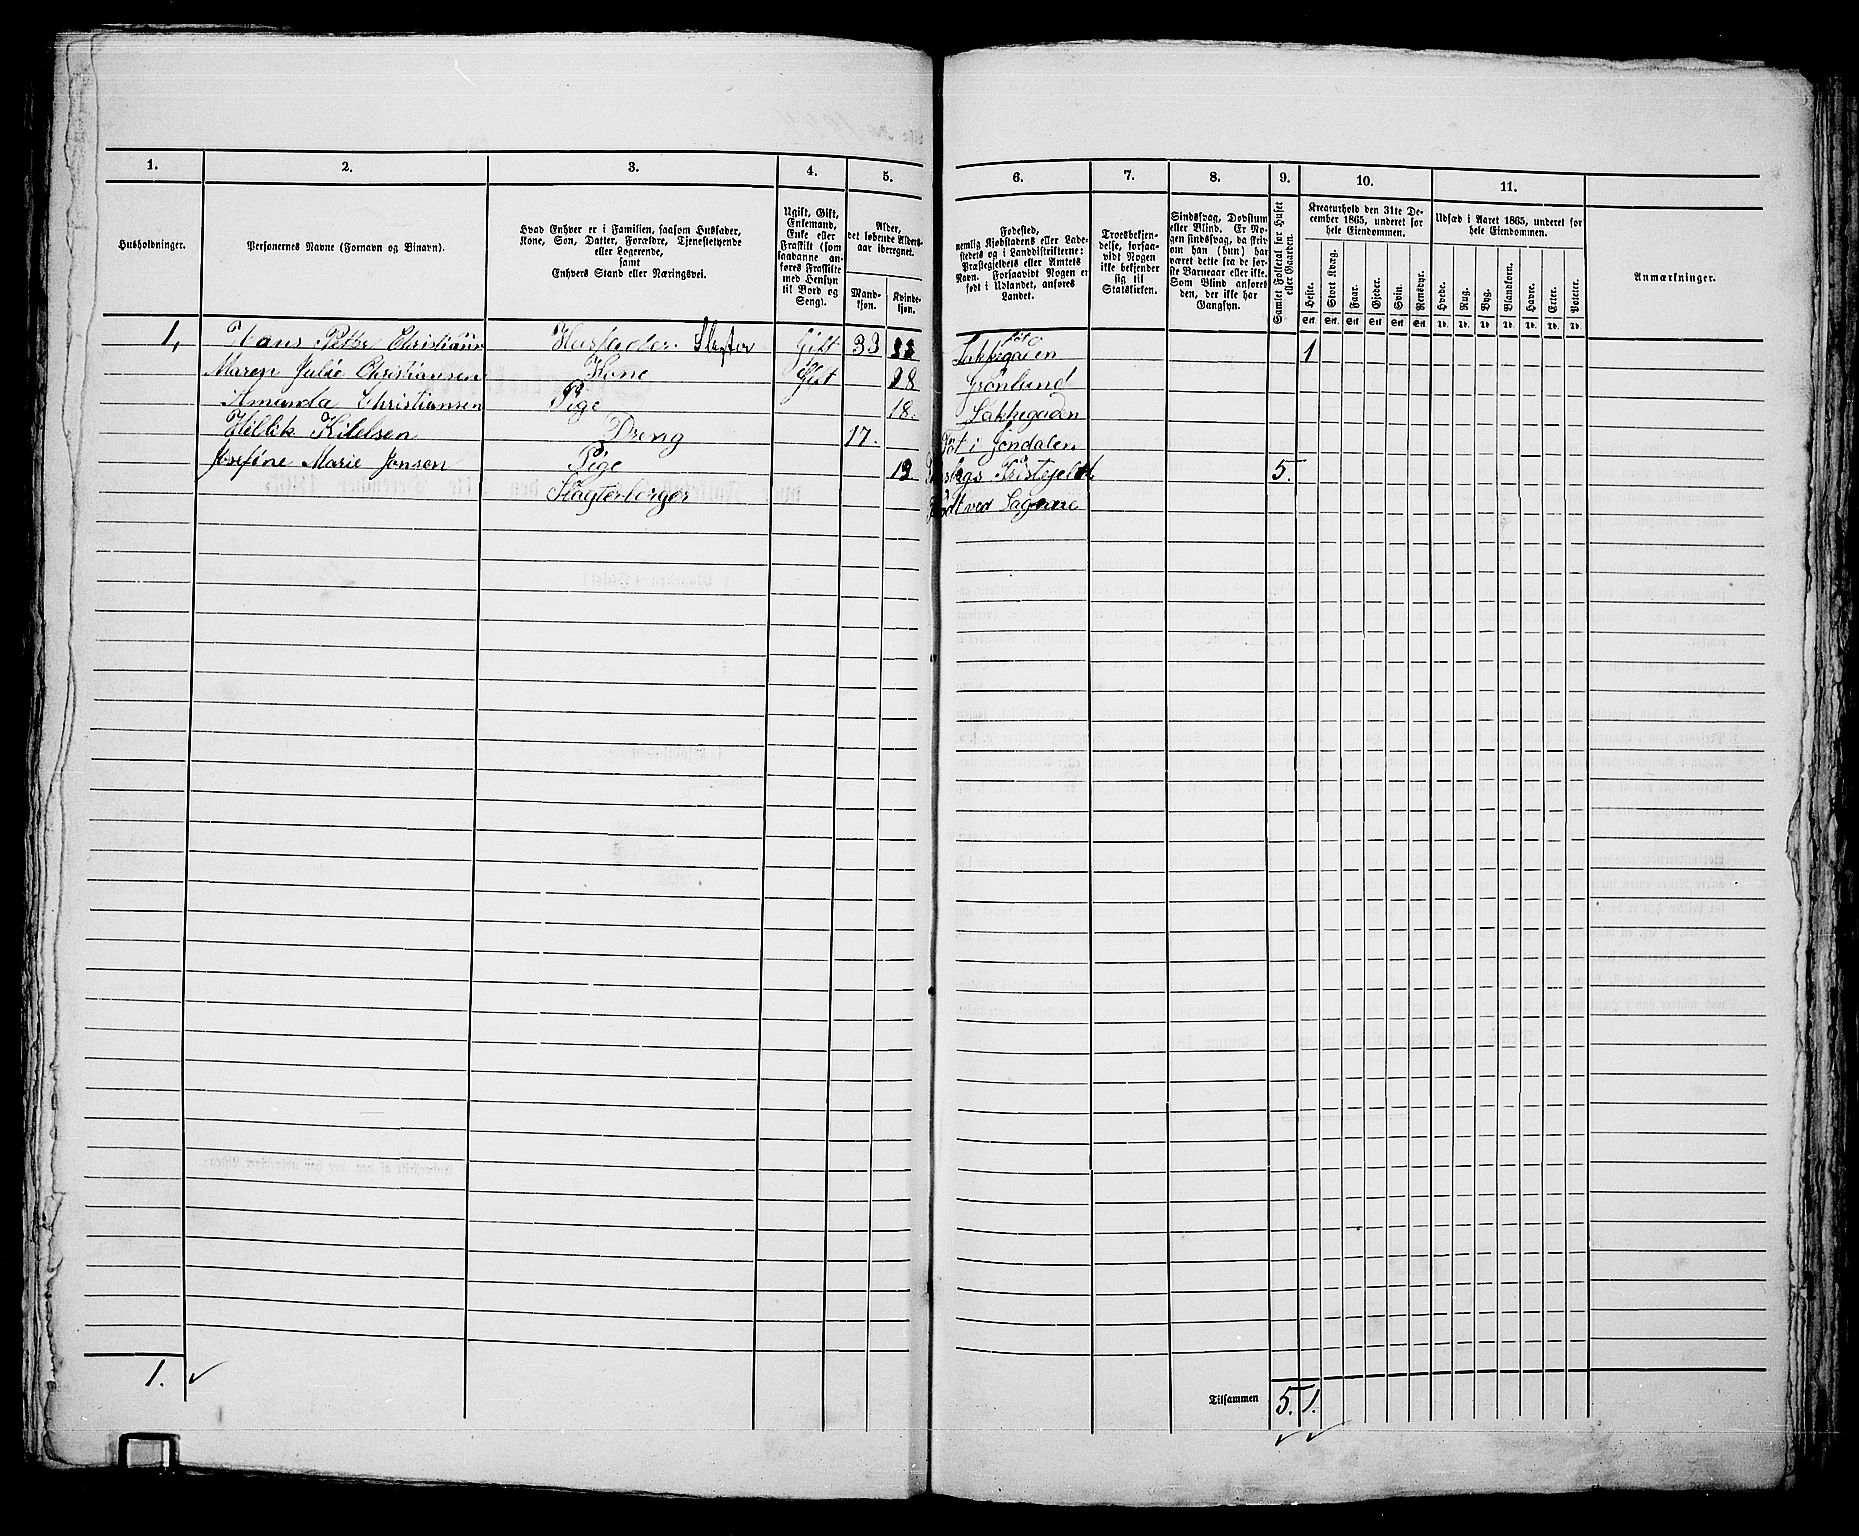 1.
2.
3.
4.
5.
Husholdninger.
Personernes Navne (Fornavn og Binavn).
Hvad Enhver er i Familien, saasom Husfader,
Kone, Søn, Datter, Forældre, Tjenestetyende
eller Logerende,
samt
Enhvers Stand eller Næringsvei.
Ugift, Gift,
Enkemand,
Enke eller
Fraskilt (som
saadanne an-
føres Fraskilte
med Hensyn
til Bord og
Seng).
Alder,
det løbende Alders-
aar iberegnet.
Mand-
kjøn.
Kvinde-
kjøn.
1, Hans Petter Christians Husfader Slagter Gift 33
Maren Julie Christiansen Kone Gift 28
Amanda Christiansen Pige 18.
Kitelsen Dreng 17.
Josefine Marie Jonsen Pige
Slagterborger
1.
6.
7.
8.
9.
10.
11.
Fødested,
nemlig Kjøbstadens eller Lade-
stedets og i Landdistrikterne:
Præstegjeldets eller Amtets
Navn. Forsaavidt Nogen er
født i Udlandet, anføres
Landet.
Troesbekjen-
delse, forsaa-
vidt Nogen
ikke bekjender
sig til
Statskirken.
Sindssvag, Døvstum
eller Blind. Er No-
gen sindssvag, da skriv
om han (hun) har
været dette fra de før-
ste Barneaar eller ikke.
Som Blind anføres
den, der ikke har
Gangsyn.
Samlet Folketal for Huset
eller Gaarden.
Kreaturhold den 31te De-
cember 1865, underet for
hele Eiendommen.
Heste.
Stort Kvæg.
Faar.
Gjeder.
Svin.
Rensdyr.
Stk. Stk. Stk. Stk. Stk. Stk.
Udsæd i Aaret 1865, underet for
hele Eiendommen.
Hvede.
Rug.
Byg.
Blandkorn.
Havre.
Erter.
Poteter.
Td. Td. Td. Td. Td. Td. Td.
Anmærkninger.
Lakkegaden 1
Grønlund
Lakkegaden
i Jondalen
5.
ved Sagene
Tilsammen 5. 1.